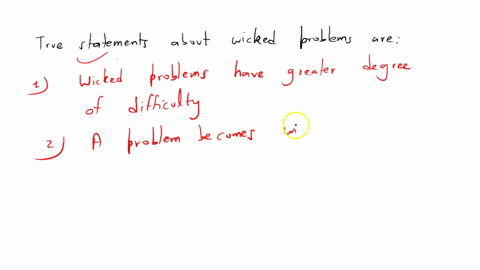 True statements about wicked problems are:
1) Wicked problems have greater degree
of difficulty
2) A problem becomes wi